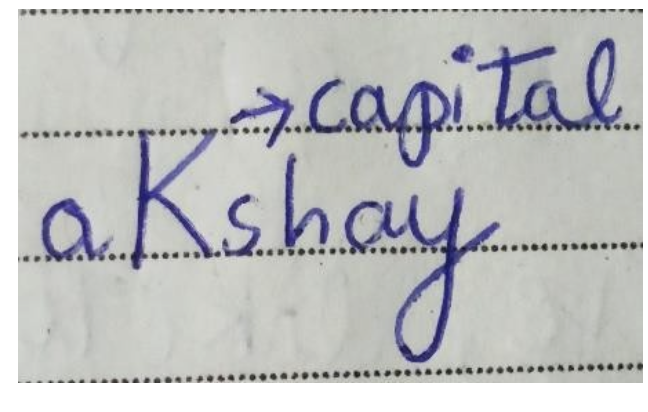 →capital
aKshay